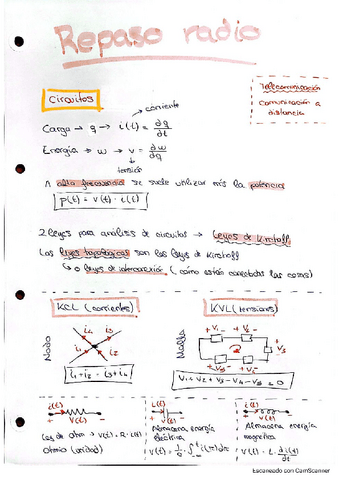 Repaso radio
Telecomunicación
comunicación a
distancia
Circuitos
corriente
Carga → q → i(t) = dq/dt
Energía → w → v = dw/dq
tensión
A alta frecuencia se suele utilizar más la potencia
p(t) = v(t) · i(t)
2 leyes para análisis de circuitos → Leyes de Kirchoff
Las leyes topológicas son las leyes de Kirchoff
↳ o leyes de interconexión ( como están conectadas las cosas)
KCL (corrientes)
KVL (tensiones)
Nodo
i1 i3
i2 i4
i1+i2 = i3+i4
Malla
+ V1 - + V2 -
+ V3 -
+ V5 - + V4 -
V1 + V2 + V3 - V4 - V5 = 0
i(t)
+ V(t) -
Ley de Ohm → V(t) = R · i(t)
Ohmio (unidad)
i(t)
V(t)
Almacena energía
eléctrica
i(t)
+ V(t) -
Almacena energía
magnética
V(t) = L · di(t)/dt
Escaneado con CamScanner